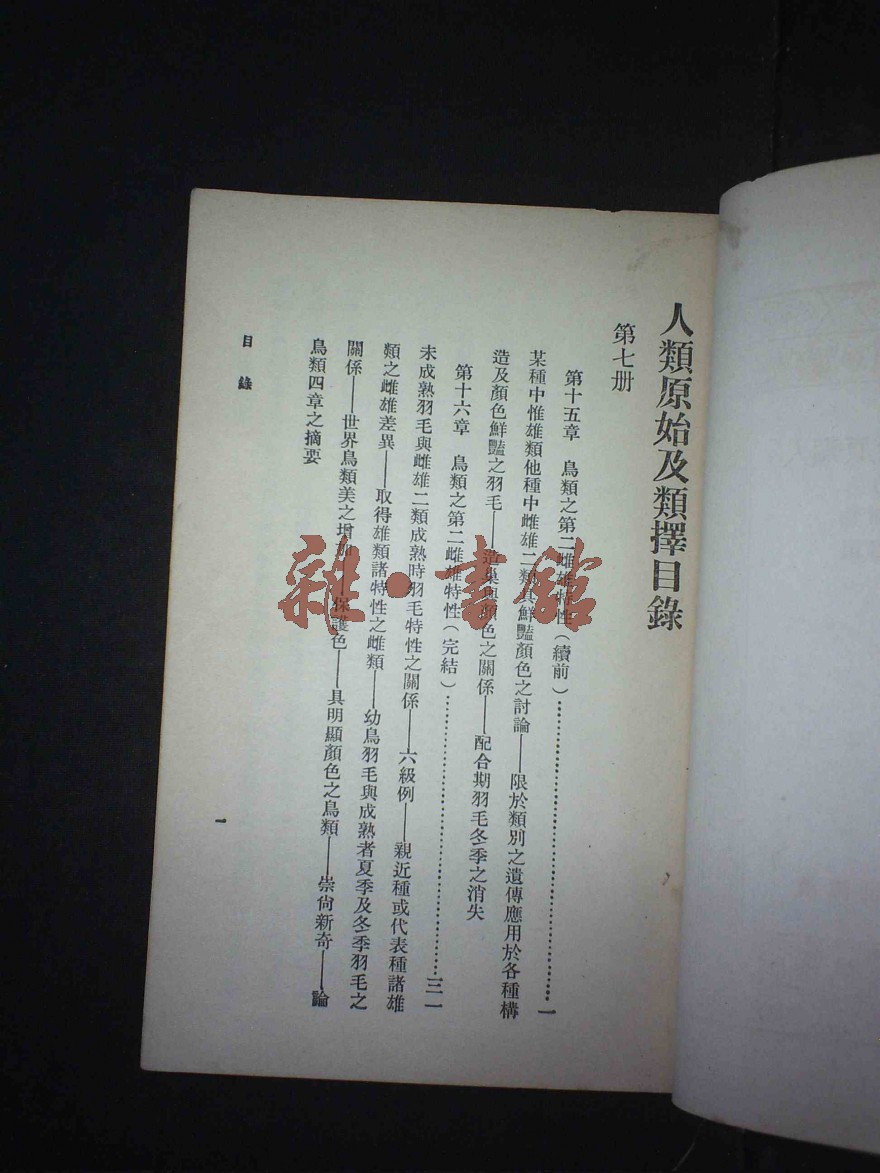 人類原始及類擇目錄
第七册
第十五章　鳥類之第二雌雄特性（續前）…………一
某種中惟雄類他種中雌雄二類具鮮豔顏色之討論——限於類別之遺傳應用於各種構
造及顏色鮮豔之羽毛——造巢與顏色之關係——配合期羽毛冬季之消失
第十六章　鳥類之第二雌雄特性（完結）…………三一
未成熟羽毛與雌雄二類成熟時羽毛特性之關係——六級例——親近種或代表種諸雄
類之雌雄差異——取得雄類諸特性之雌類——幼鳥羽毛與成熟者夏季及冬季羽毛之
關係——世界鳥類美之增加——保護色——具明顯顏色之鳥類——崇尙新奇——論
鳥類四章之摘要
目錄
一
雜·書館